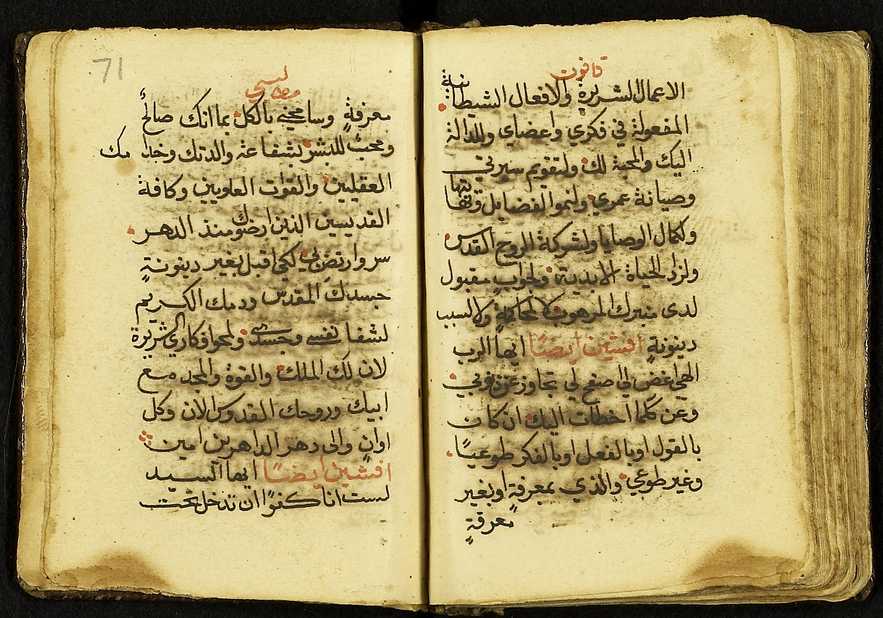 قانون
الاعمال الشريرة والافعال الشيطانية
المفعولة في فكري واعضاي وللدالة
اليك والمحبة لك ولتقويم سيرتي
وصيانة عمري ولنمو الفضايل ونقائها
ولكمال الوصايا ولشركة الروح القدس
ولزاد الحياة الابدية ولجواب مقبول
لدى منبرك المرهوب لا لمحاكمة ولا لسبب
دينونةٍ افشين ايضًا ايها الرب
الهي اغضِ الى صفح لي تجاوز عن ذنوبي
وعن كلما اخطات اليك ان كان
بالقول او بالفعل او بالفكر طوعيًا
وغير طوعي والذي بمعرفةٍ او بغير
معرفةٍ
71
معرفةٍ وسامحني بالكل بما انك صالحٌ
ومحبٌ للبشر بشفاعة والدتك وخدامك
العقليين والقوات العلويين وكافة
القديسين الذين ارضوك منذ الدهر
سر وارتضِ لي لكي اقبل بغير دينونةٍ
جسدك المقدس ودمك الكريم
لشفا نفسي وجسدي ولمحو افكاري الشريرة
لان لك الملك والقوة والمجد مع
ابيك وروحك القدوس الان وكل
اوانٍ والى دهر الداهرين امين
افشين ايضًا ايها السيد
لست انا كفوًا ان تدخل تحت